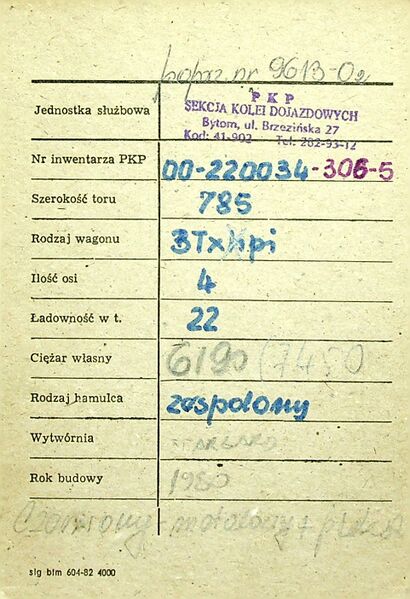 poprz. nr 9613-02
Jednostka służbowa
PKP
SEKCJA KOLEI DOJAZDOWYCH
Bytom, ul. Brzezińska 27
Kod: 41-902 Tel: 282-93-12
Nr inwentarza PKP 00-220034-306-5
Szerokość toru 785
Rodzaj wagonu
Ilość osi 4
Ładowność w t. 22
Ciężar własny 6190 (7450
Rodzaj hamulca zespolony
Wytwórnia STARGARD
Rok budowy 1980
sig bim 604-82 4000